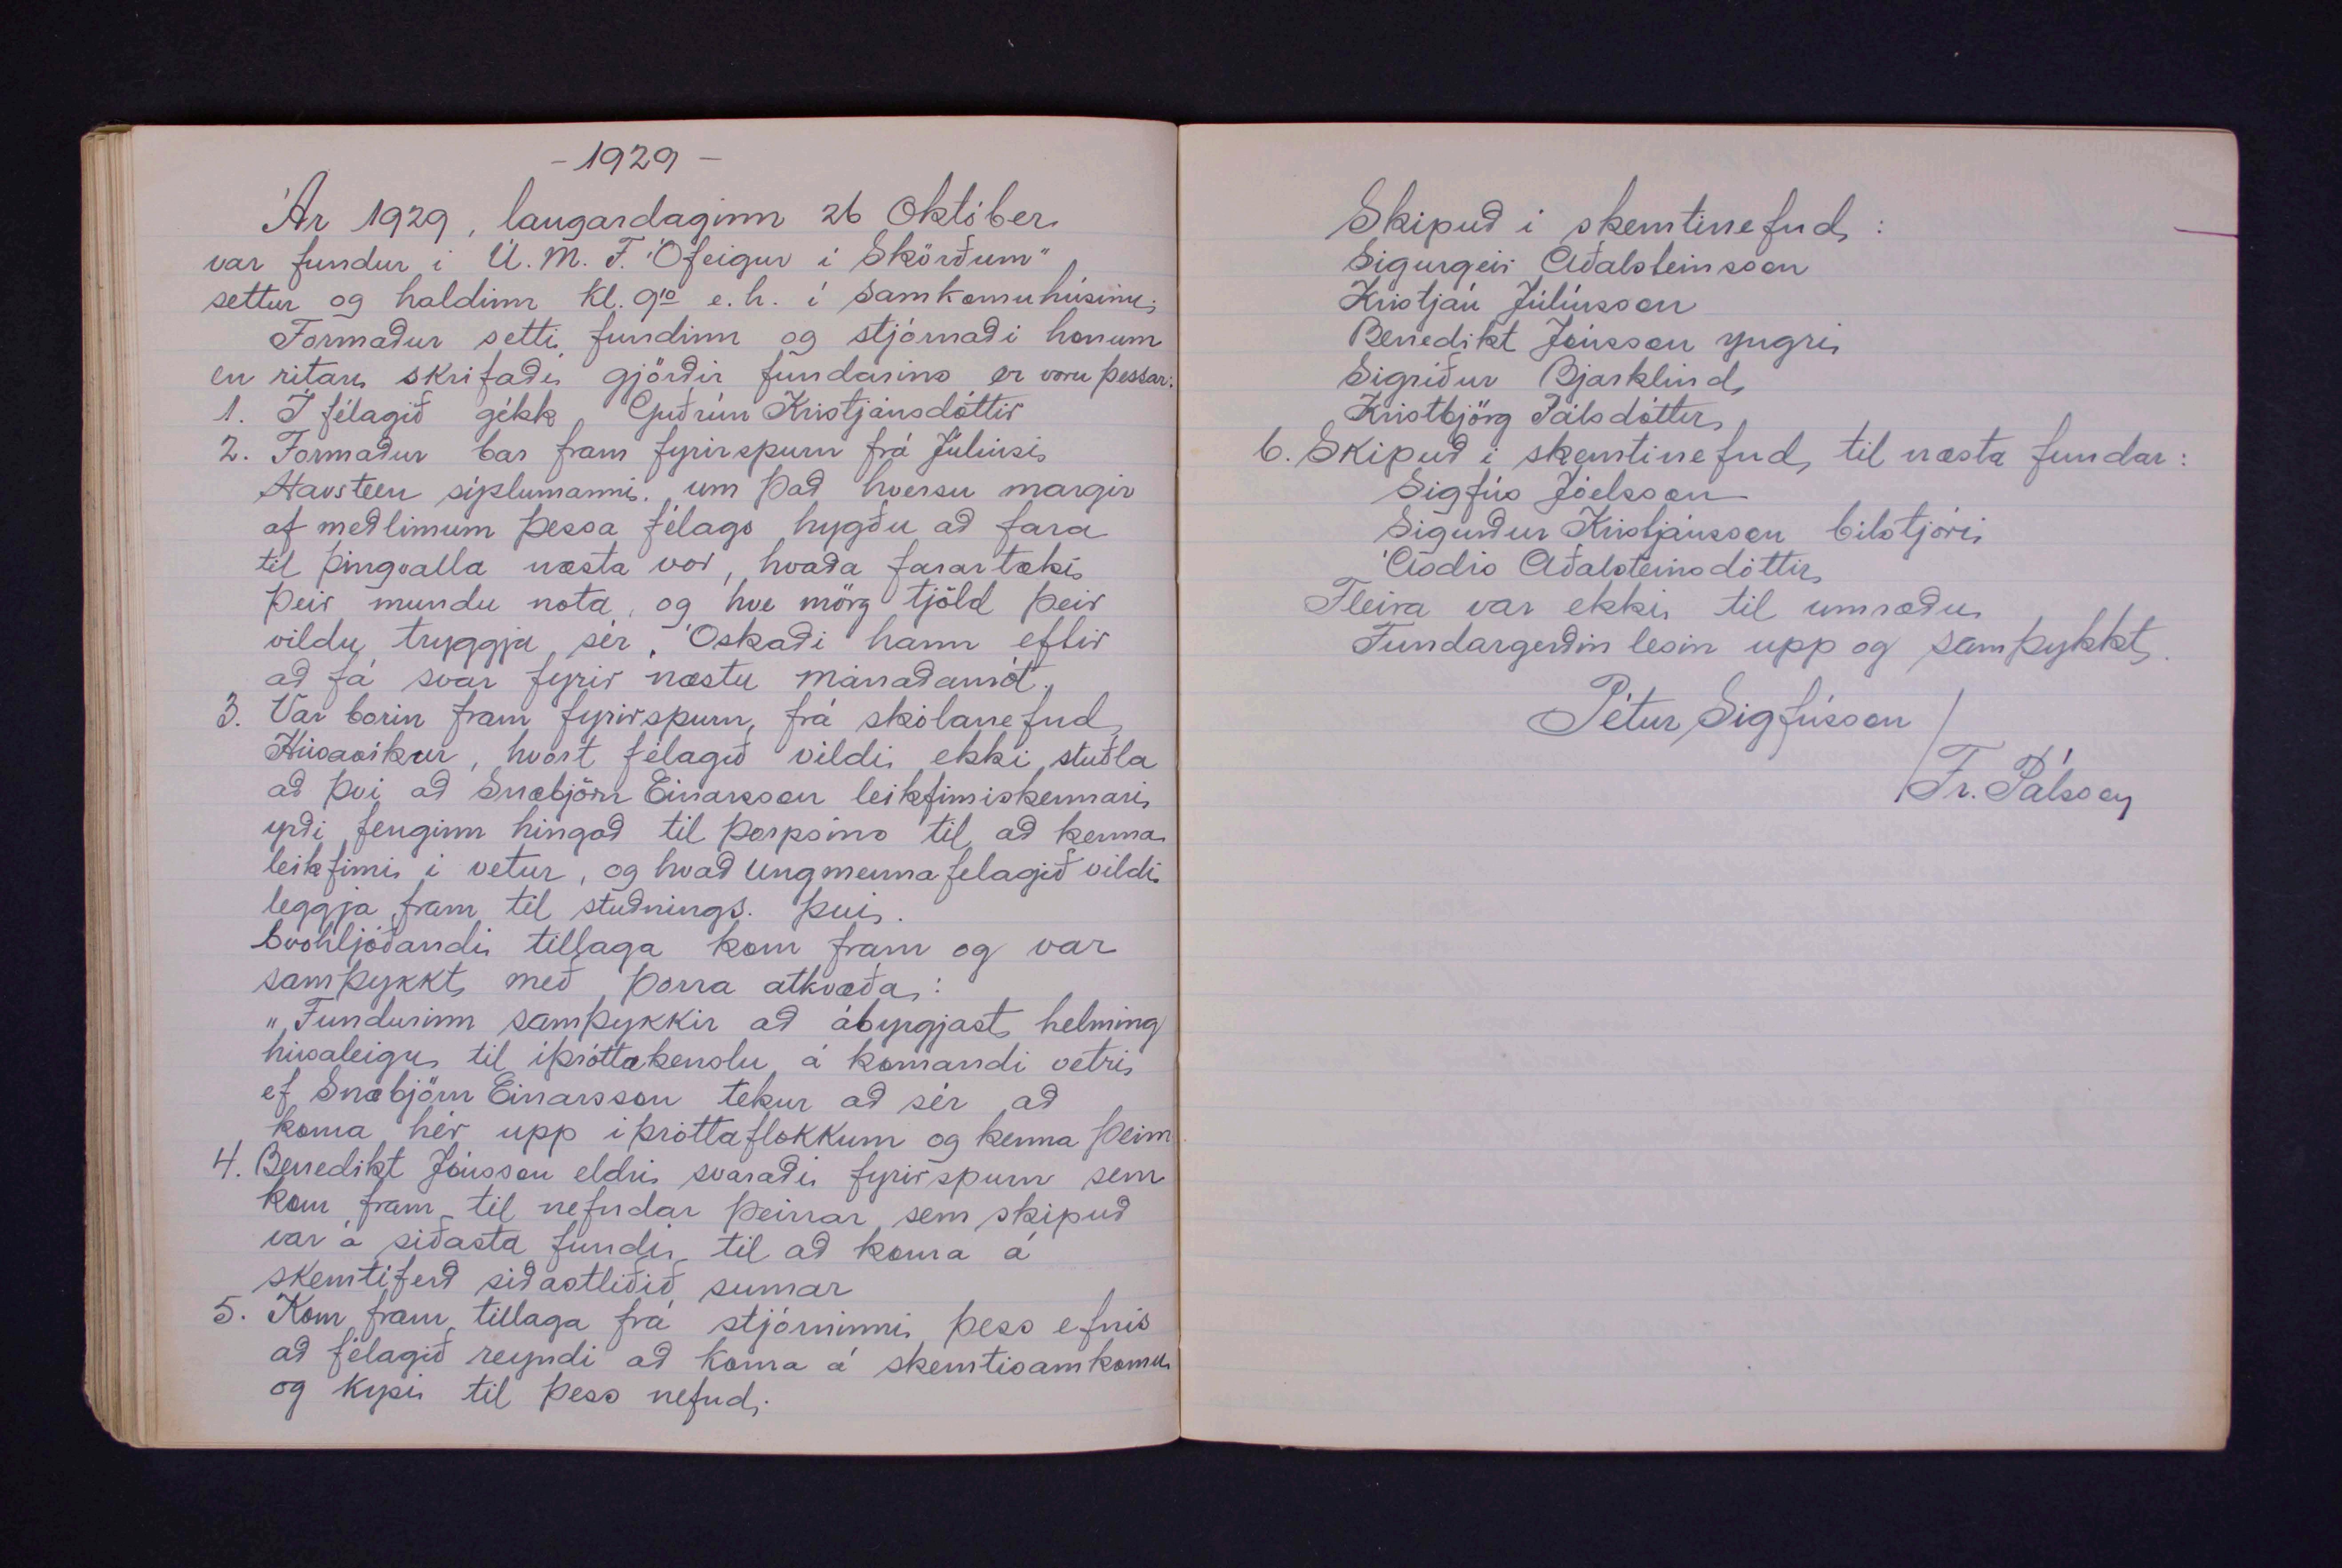 - 1929 -
Ár 1929, laugardaginn 26 Október
var fundur í U. M. F. "Ófeigur í Skörðum"
settur og haldinn kl. 9¹⁰ e. h. í samkomuhúsinu.
Formaður setti fundinn og stjórnaði honum
en ritari skrifaði gjörðir fundarins er voru þessar:
1. Í félagið gékk Guðrún Kristjánsdóttir
2. Formaður bar fram fyrirspurn frá Júlíusi
Havsteen sýslumanni. um það hversu margir
af meðlimum þessa félags hygðu að fara
til þingvalla næsta vor, hvaða farartæki
þeir mundu nota, og hve mörg tjöld þeir
vildu tryggja sér. Óskaði hann eftir
að fá svar fyrir næstu mánaðamót.
3. Var borin fram fyrirspurn, frá skólanefnd
Húsavíkur, hvort félagið vildi ekki stuðla
að því að Snæbjörn Einarsson leikfimiskennari
yrði fenginn hingað til þorpsins til að kenna
leikfimi í vetur, og hvað Ungmennafelagið vildi
leggja fram til stuðnings. því.
Svohljóðandi tillaga kom fram og var
samþykkt með þorra atkvæða:
"Fundurinn samþykkir að ábyrgjast helming
húsaleigu til íþróttakenslu á komandi vetri
ef Snæbjörn Einarsson tekur að sér að
koma hér upp íþróttaflokkum og kenna þeim
4. Benedikt Jónsson eldri svaraði fyrirspurn sem
kom fram til nefndar þeirrar sem skipuð
var á síðasta fundi til að koma á
skemtiferð síðastliðið sumar
5. Kom fram tillaga frá stjórninni þess efnis
að félagið reyndi að koma á skemtisamkomu
og kysi til þess nefnd.
Skipuð í skemtinefnd:
Sigurgeir Aðalsteinsson
Kristján Júlíusson
Benedikt Jónsson yngri
Sigríður Bjarklind
Kristbjörg Pálsdóttir
6. Skipuð í skemtinefnd til næsta fundar:
Sigfús Jóelsson
Sigurður Kristjánsson bílstjóri
Ásdís Aðalsteinsdóttir
Fleira var ekki til umræðu
Fundargerðin lesin upp og samþykkt.
Pétur Sigfússon /
/ Fr. Pálsson